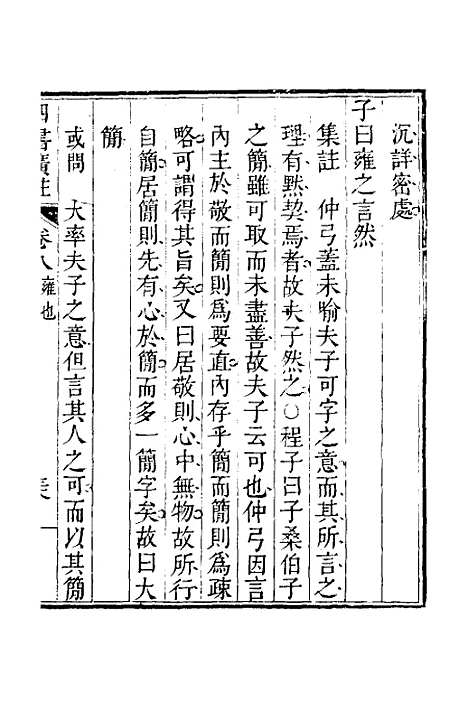 沉詳密處
子曰雍之言然
集註　仲弓蓋未喻夫子可字之意而其所言之
理有默契焉者故夫子然之○程子曰子桑伯子
之簡雖可取而未盡善故夫子云可也仲弓因言
內主於敬而簡則為要直內存乎簡而簡則為疎
略可謂得其旨矣又曰居敬則心中無物故所行
自簡居簡則先有心於簡而多一簡字矣故曰大
簡
或問　大率夫子之意但言其人之可而以其簡
四書廣註　卷八雍也